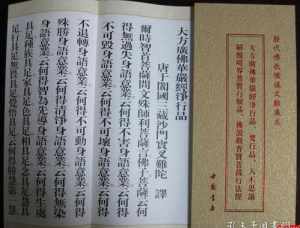 大方廣佛華嚴經淨行品、梵行品、入不思議
解脫境界普賢行願品、佛說觀普賢菩薩行法經
中國書店
大方廣佛華嚴經淨行品
唐于闐國三藏沙門實叉難陀 譯
爾時智首菩薩問文殊師利菩薩言佛子菩薩云何
得無過失身語意業云何得不害身語意業云何
得不可毀身語意業云何得不可壞身語意業云何得
不退轉身語意業云何得不可動身語意業云何得
殊勝身語意業云何得清淨身語意業云何得無染
身語意業云何得智為先導身語意業云何得生處
具足種族具足家具足色具足相具足念具足慧具
足行具足無畏具足覺悟具足云何得勝慧第一慧